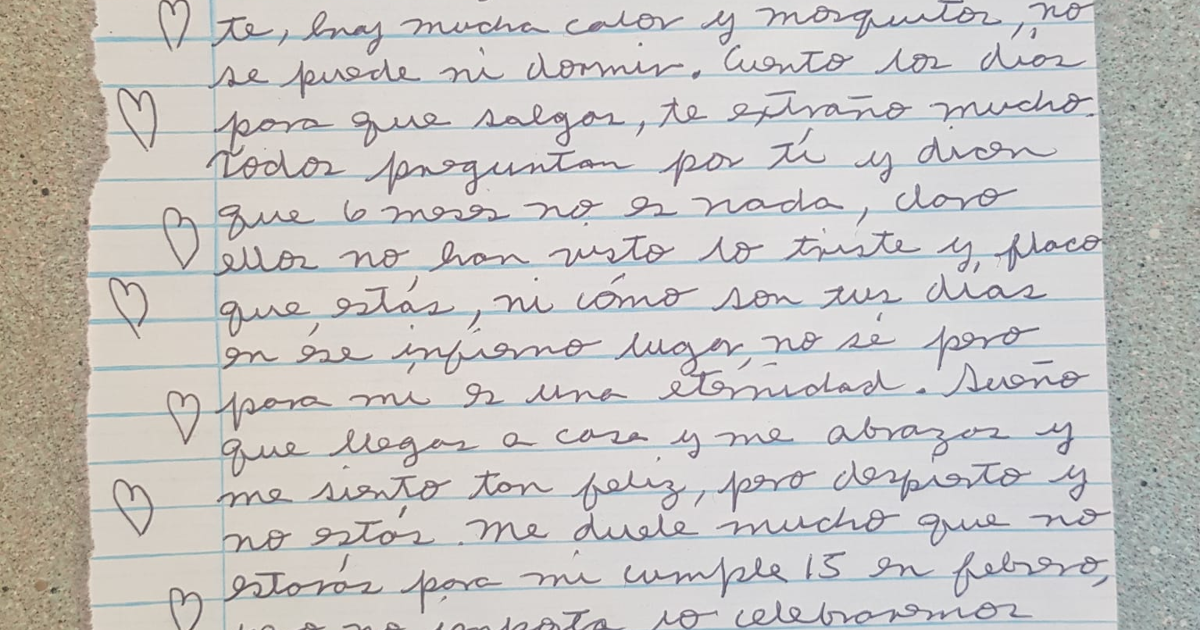 te, hay mucha calor y mosquitos, no
se puede ni dormir. Cuento los días
para que salgas, te extraño mucho.
Todos preguntan por tí y dicen
que 6 meses no es nada, claro
ellos no han visto lo triste y flaco
que estás, ni cómo son tus días
en ése infierno lugar, no sé pero
para mi es una eternidad. Sueño
que llegas a casa y me abrazas y
me siento tan feliz, pero despierto y
no estás. Me duele mucho que no
estarás para mi cumple 15 en febrero,
no importa lo celebraremos